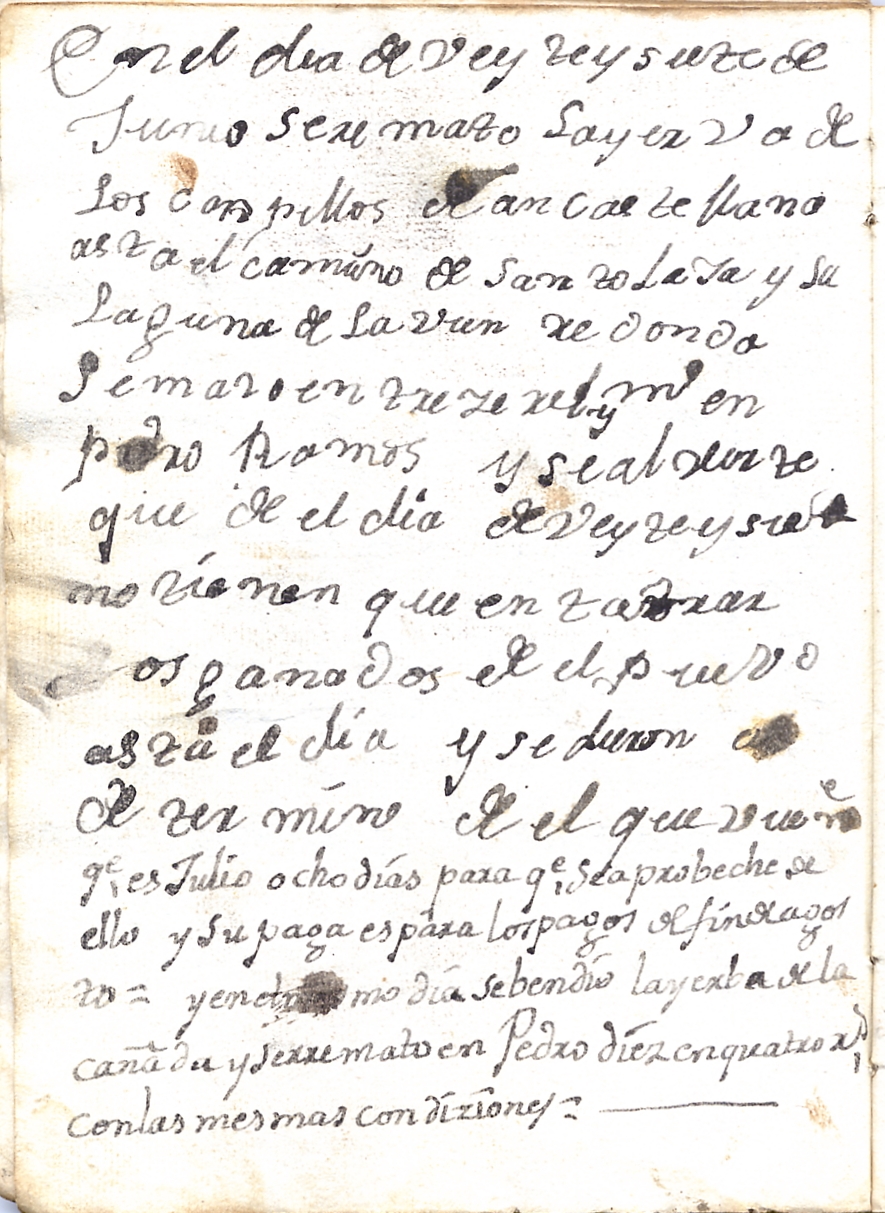 En el dia de veyteysiete de
Junio se rematо Layerva de
Los canpillos de an castellano
asta el camino de santolaJa y su
Laguna de Lavun redonda
Sematoentrezerel y m en
pedro Ramos y sealvierte
que de el dia de Veyteysiete
no tienen que entrar
os ganados de el puevo
asta el dia y se dieron
de termino de el que viene
qe, es Julio ocho días para qe, sea probeche de
ello y su paga es para los pagos de fin de agos
to = y en el mo dia se bendio la yerba de la
cañada y serremato en Pedro díez en quatro rs
con las mesmas condiziones =